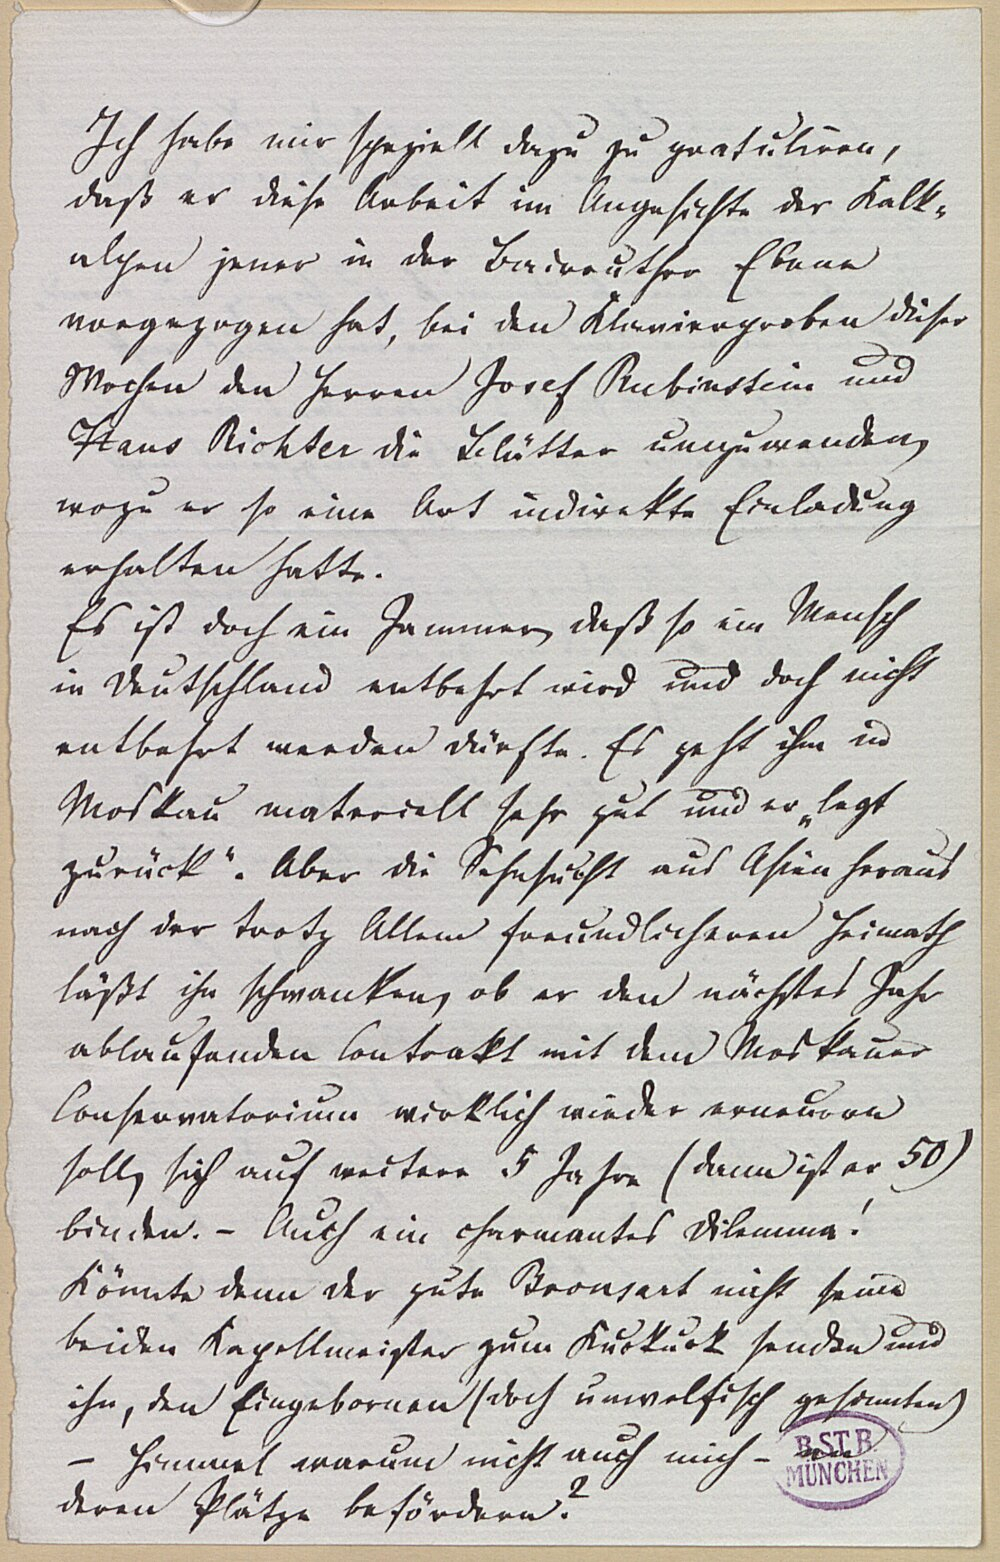 Ich habe mir speziell dazu zu gratuliren,
daß er diese Arbeit im Angesichte der Kalk-
alpen jener in der Baireuther Ebene
vorgezogen hat, bei den Klavierproben dieser
Wochen den Herren Josef Rubinstein und
Hans Richter die Blätter umzuwenden,
wozu er so eine Art indirekte Einladung
erhalten hatte.
Es ist doch ein Jammer, daß so ein Mensch
in Deutschland entbehrt wird und doch nicht
entbehrt werden dürfte. Es geht ihm in
Moskau materiell sehr gut und er „legt
zurück“. Aber die Sehnsucht aus Asien heraus
nach der trotz Allem freundlicheren Heimath
läßt ihn schwanken, ob er den nächstes Jahr
ablaufenden Contrakt mit dem Moskauer
Conservatorium wirklich wieder erneuern
soll, sich auf weitere 5 Jahre (dann ist er 50)
binden. – Auch ein charmantes Dilemma!
Könnte denn der gute Bronsart nicht seine
beiden Kapellmeister zum Kuckuck senden und
ihn, den Eingebornen (doch unwelfisch gesinnten)
– Himmel warum nicht auch mich – an
deren Plätze befördern?
B.ST.B.
MÜNCHEN